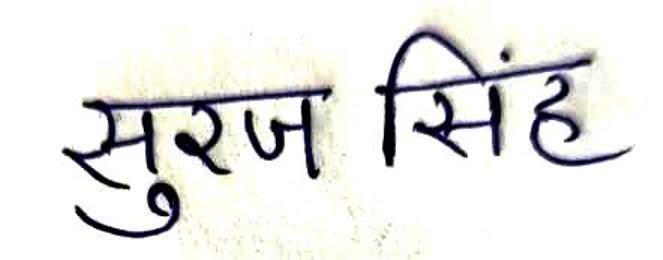 सुरज सिंह